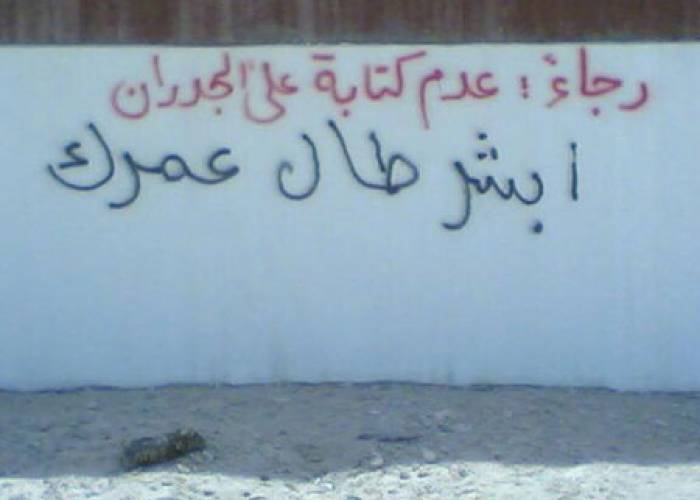 رجاءً : عدم كتابة على الجدران
ابشر طال عمرك